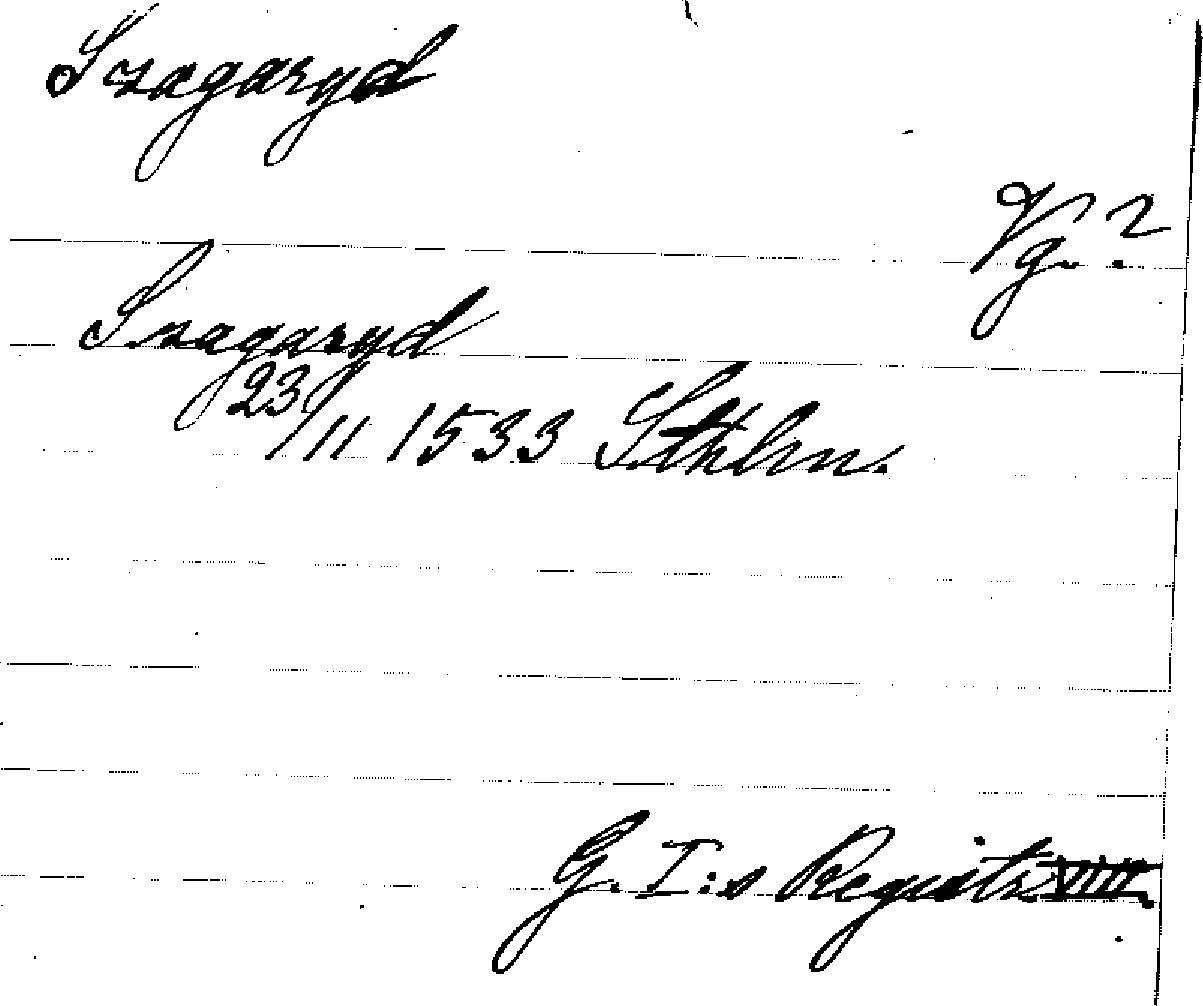 Szagaryd
Vg.?
Szagaryd
23/11 1533 Sthlm.
G. I:s Registr VIII.